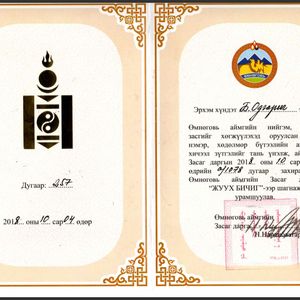 Дугаар: 257
2018 оны 10 сар 04 өдөр
Эрхэм хүндэт Б.Одгэрэл
Өмнөговь аймгийн нийгэм,
засгийг хөгжүүлэхэд оруулсан
нэмэр, хөдөлмөр бүтээлийн
хичээл зүтгэлийг тань үнэлж,
Засаг даргын 2018 оны 10
өдрийн тоот захира
Өмнөговь аймгийн Засаг
"ЖУУХ БИЧИГ"-ээр шагнаж
урамшуулав.
Өмнөговь аймгийн
Засаг дарга